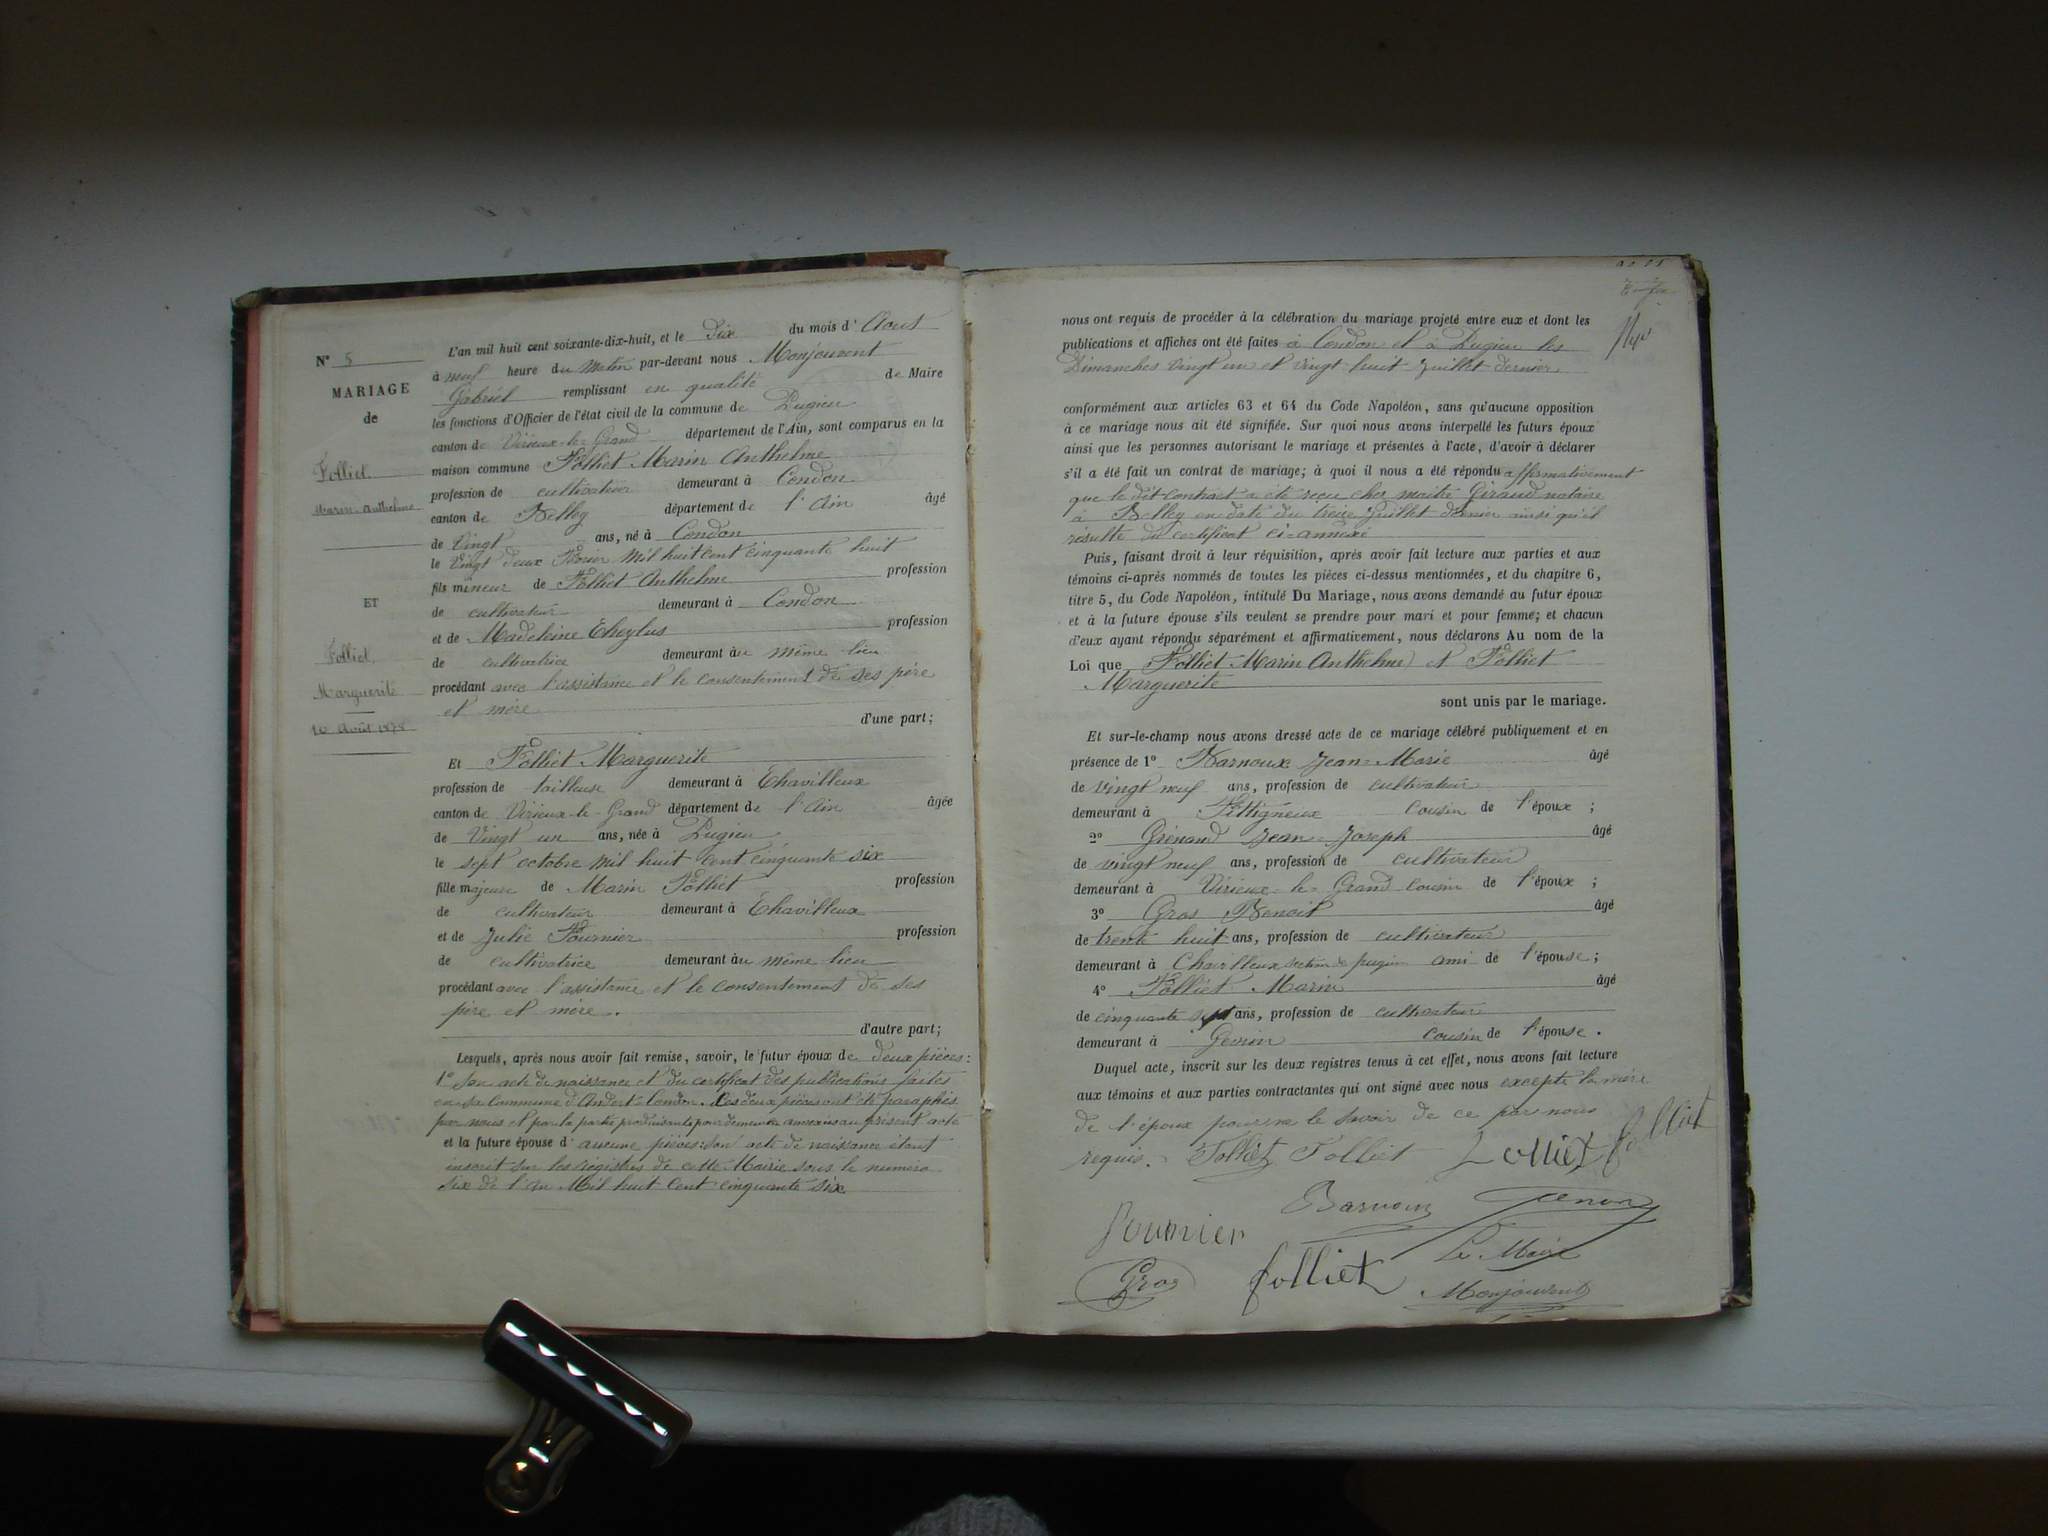 N° 5
MARIAGE
de
Folliet
Marin Anthelme
ET
Folliet
Marguerite
10 Août 1878
L'an mil huit cent soixante-dix-huit, et le Dix du mois d'Aout
à neuf heure du Matin par-devant nous Monjouvent
Gabriel remplissant en qualité de Maire
les fonctions d'Officier de l'état civil de la commune de Pugieu
canton de Virieux-le-Grand département de l'Ain, sont comparus en la
maison commune Folliet Marin Anthelme
profession de cultivateur demeurant à Condon
canton de Belley département de l'Ain âgé
de Vingt ans, né à Condon
le Vingt deux Février Mil huit cent cinquante huit
fils mineur de Folliet Anthelme profession
de cultivateur demeurant à Condon
et de Madeleine Cheylus profession
de cultivatrice demeurant au même lieu
procédant avec l'assistance et le consentement de ses père
et mère
d'une part;
Et Folliet Marguerite
profession de tailleuse demeurant à Chavilleux
canton de Virieux-le-Grand département de l'Ain âgée
de Vingt un ans, née à Pugieu
le sept octobre mil huit cent cinquante six
fille majeure de Marin Folliet profession
de cultivateur demeurant à Chavilleux
et de Julie Fournier profession
de cultivatrice demeurant au même lieu
procédant avec l'assistance et le consentement de ses
père et mère.
d'autre part;
Lesquels, après nous avoir fait remise, savoir, le futur époux de deux pièces:
1° Son acte de naissance et du certificat des publications faites
en sa Commune d'Andert-Condon. Les deux pièces ont été paraphés
par nous et par la partie produisante pour demeurer annexés au présent acte
et la future épouse d'aucune pièces: son acte de naissance étant
inscrit sur les régistres de cette Mairie sous le numéro
six de l'an Mil huit cent cinquante six
nous ont requis de procéder à la célébration du mariage projeté entre eux et dont les
publications et affiches ont été faites à Condon et à Pugieu les
Dimanches vingt un et vingt huit Juillet dernier
conformément aux articles 63 et 64 du Code Napoléon, sans qu'aucune opposition
à ce mariage nous ait été signifiée. Sur quoi nous avons interpellé les futurs époux
ainsi que les personnes autorisant le mariage et présentes à l'acte, d'avoir à déclarer
s'il a été fait un contrat de mariage; à quoi il nous a été répondu affirmativement
que le dit contrat a été reçu chez maître Giraud notaire
à Belley en date du treize Juillet dernier ainsi qu'il
résulte du certificat ci-annexé
Puis, faisant droit à leur réquisition, après avoir fait lecture aux parties et aux
témoins ci-après nommés de toutes les pièces ci-dessus mentionnées, et du chapitre 6,
titre 5, du Code Napoléon, intitulé Du Mariage, nous avons demandé au futur époux
et à la future épouse s'ils veulent se prendre pour mari et pour femme; et chacun
d'eux ayant répondu séparément et affirmativement, nous déclarons Au nom de la
Loi que Folliet Marin Anthelme et Folliet
Marguerite
sont unis par le mariage.
Et sur-le-champ nous avons dressé acte de ce mariage célébré publiquement et en
présence de 1° Barnoux Jean-Marie âgé
de Vingt neuf ans, profession de cultivateur
demeurant à cousin de l'époux;
2° Grénand Jean-Joseph âgé
de vingt neuf ans, profession de cultivateur
demeurant à Virieux-le-Grand cousin de l'époux;
3° Gros Benoit âgé
de trente huit ans, profession de cultivateur
demeurant à Chavilleux section de pugieu ami de l'épouse;
4° Folliet Marin âgé
de cinquante sept ans, profession de cultivateur
demeurant à Gevrin cousin de l'épouse.
Duquel acte, inscrit sur les deux registres tenus à cet effet, nous avons fait lecture
aux témoins et aux parties contractantes qui ont signé avec nous excepté la mère
de l'époux pour ne le savoir de ce par nous
requis. Folliet Folliet Folliet folliet
Barnoux Grenan
Fournier
Le Maire
Gros folliet Monjouvent